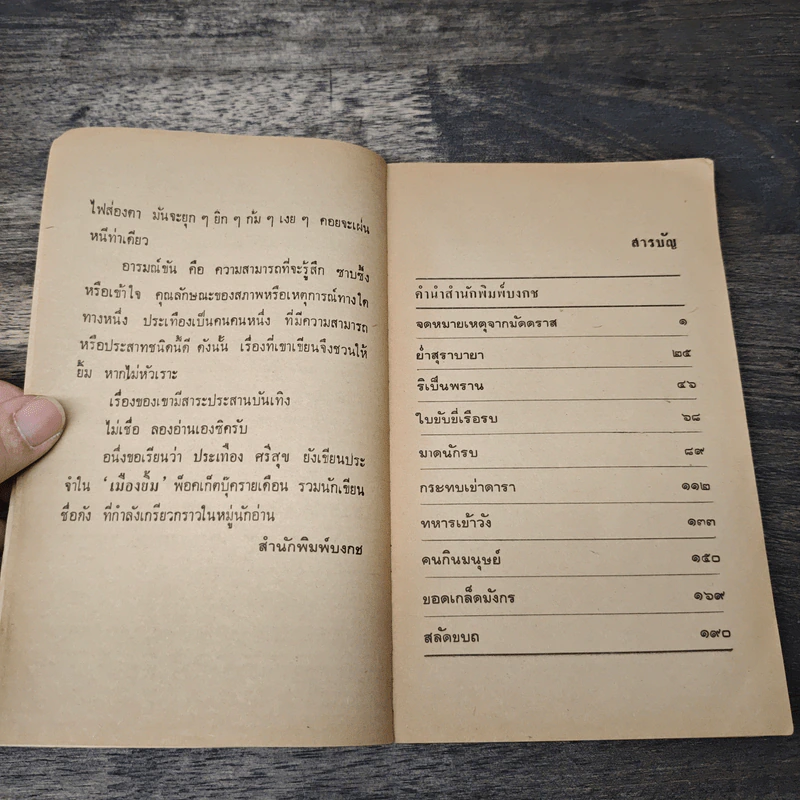 ไฟส่องตา มันจะยุก ๆ ยิก ๆ ก้ม ๆ เงย ๆ คอยจะเผ่น
หนีท่าเดียว
อารมณ์ขัน คือ ความสามารถที่จะรู้สึก ซาบซึ้ง
หรือเข้าใจ คุณลักษณะของสภาพหรือเหตุการณ์ทางใด
ทางหนึ่ง ประเทืองเป็นคนคนหนึ่ง ที่มีความสามารถ
หรือประสาทชนิดนี้ดี ดังนั้น เรื่องที่เขาเขียนจึงชวนให้
ยิ้ม หากไม่หัวเราะ
เรื่องของเขามีสาระประสานบันเทิง
ไม่เชื่อ ลองอ่านเองซิครับ
อนึ่งขอเรียนว่า ประเทือง ศรีสุข ยังเขียนประ
จำใน 'เมืองยิ้ม' พ็อคเก็ตบุ๊ครายเดือน รวมนักเขียน
ชื่อดัง ที่กำลังเกรียวกราวในหมู่นักอ่าน
สำนักพิมพ์บงกช
สารบัญ
คำนำสำนักพิมพ์บงกช
จดหมายเหตุจากมัดดราส ๑
ย่ำสุราบายา ๒๕
ริเป็นพราน ๔๖
ใบขับขี่เรือรบ ๖๘
มาดนักรบ ๘๙
กระทบเข่าดารา ๑๑๒
ทหารเข้าวัง ๑๓๓
คนกินมนุษย์ ๑๕๐
ขอดเกล็ดมังกร ๑๖๙
สลัดขบถ ๑๙๐